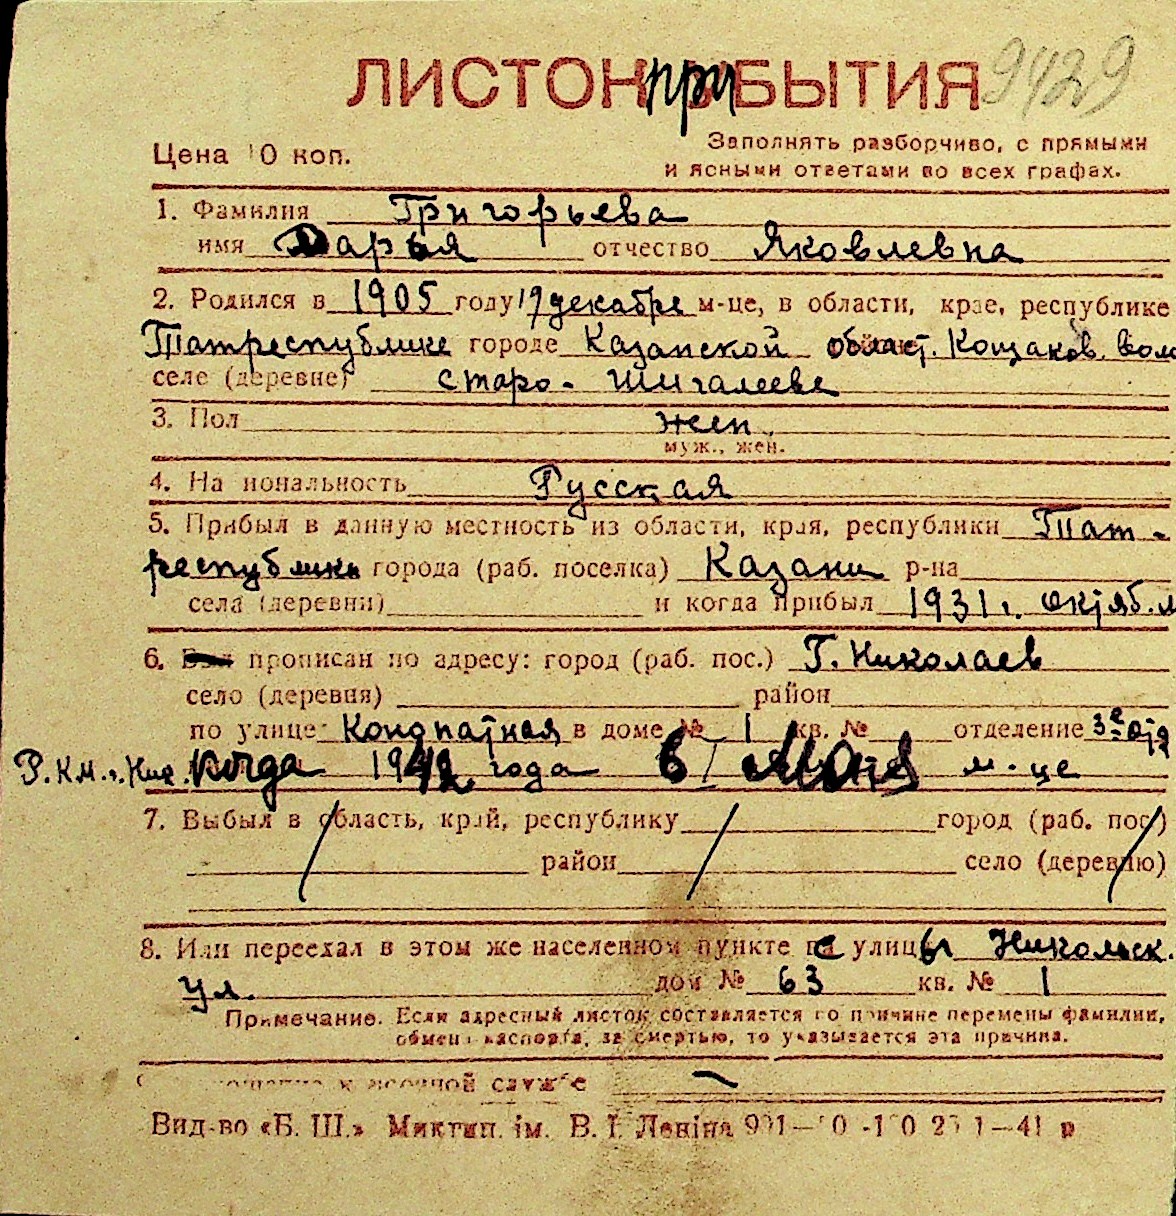 ЛИСТОК прибЫТИЯ 9429
Цена 10 коп. Заполнять разборчиво, с прямыми
и ясными ответами во всех графах.
1. Фамилия Григорьева
имя Дарья отчество Яковлевна
2. Родился в 1905 году 19 декабре м-це, в области, крае, республике
Татреспублике городе Казанской област. Кощаков. Вол
селе (деревне) старо-Шигалееве
3. Пол жен.
муж., жен.
4. Национальность Русская
5. Прибыл в данную местность из области, края, республики Тат-
республики города (раб. поселка) Казани р-на
села (деревни) и когда прибыл 1931 г. октяб. м
6. прописан по адресу: город (раб. пос.) Г. Николаев
село (деревня) район
по улице: в доме № 1 кв. № отделение 3е отд
Р.К.М. г. Ник. когда 1942 года 6/ Мая м-це
7. Выбыл в область, край, республику город (раб. пос.)
район село (деревню)
8. Или переехал в этом же населенном пункте с улицы Никольск.
ул. дом № 63 кв. № 1
Примечание. Если адресный листок составляется по причине перемены фамилии,
обмена паспорта, за смертью, то указывается эта причина.
к военной службе
Вид-во «Б. Ш.» Миктип. ім. В. І. Леніна